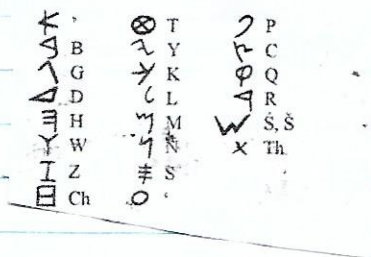 𐤀 ʾ
𐤁 B
𐤂 G
𐤃 D
𐤄 H
𐤅 W
𐤆 Z
𐤇 Ch
𐤈 T
𐤉 Y
𐤊 K
𐤋 L
𐤌 M
𐤍 N
𐤎 S
𐤏 ʿ
𐤐 P
𐤑 C
𐤒 Q
𐤓 R
𐤔 Ś, Š
𐤕 Th